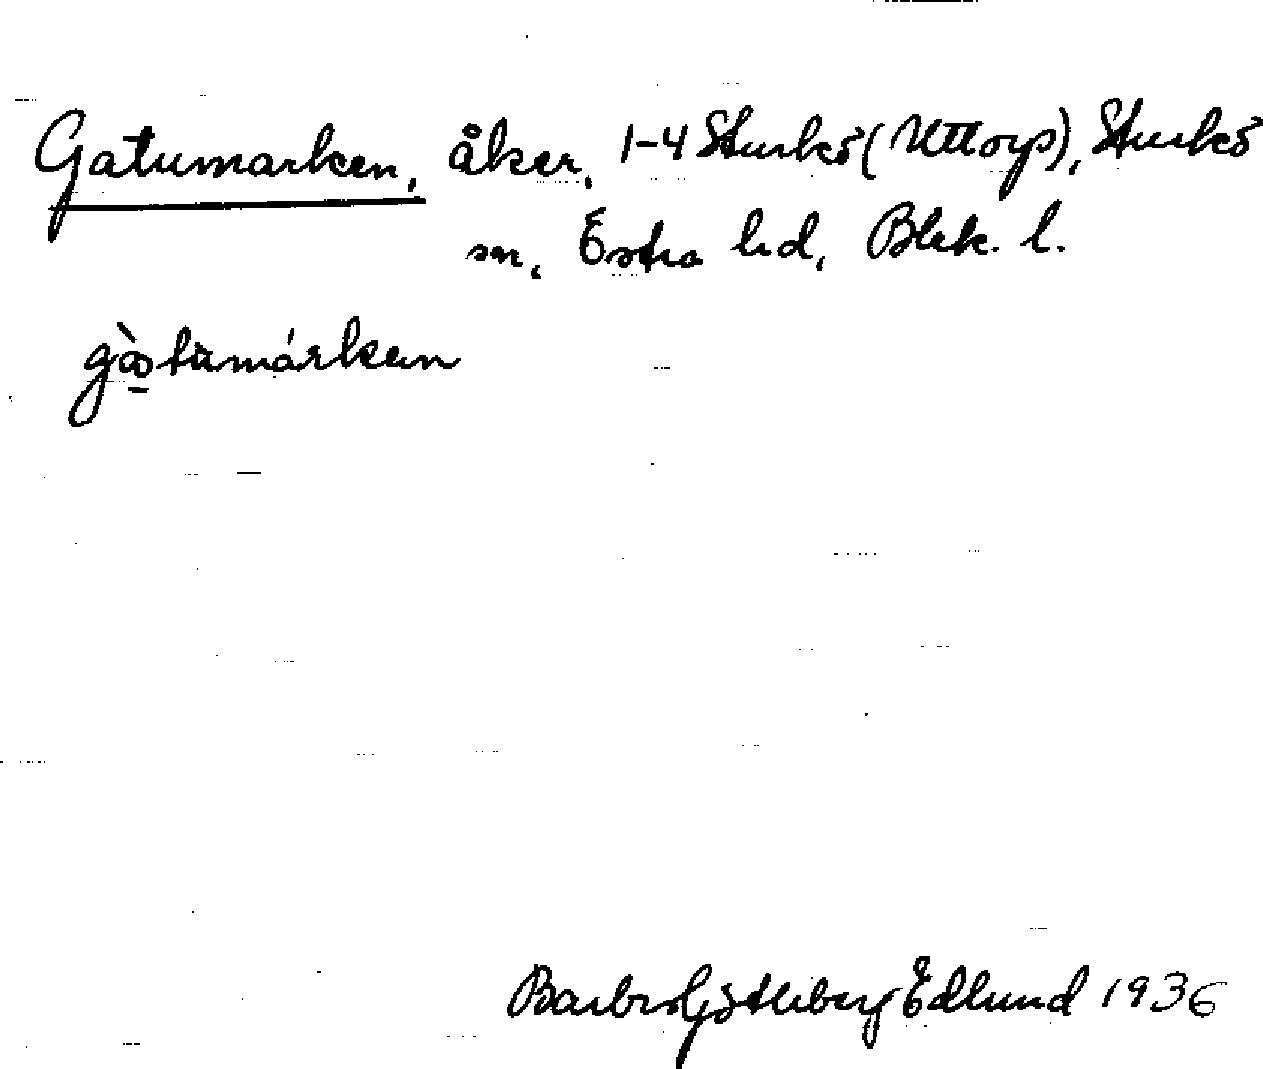 Gatumarken, åker, 1-4 Sturkö (Uttorp), Sturkö
sn, Östra hd, Blek. l.
Barbro Götleberg Edlund 1936